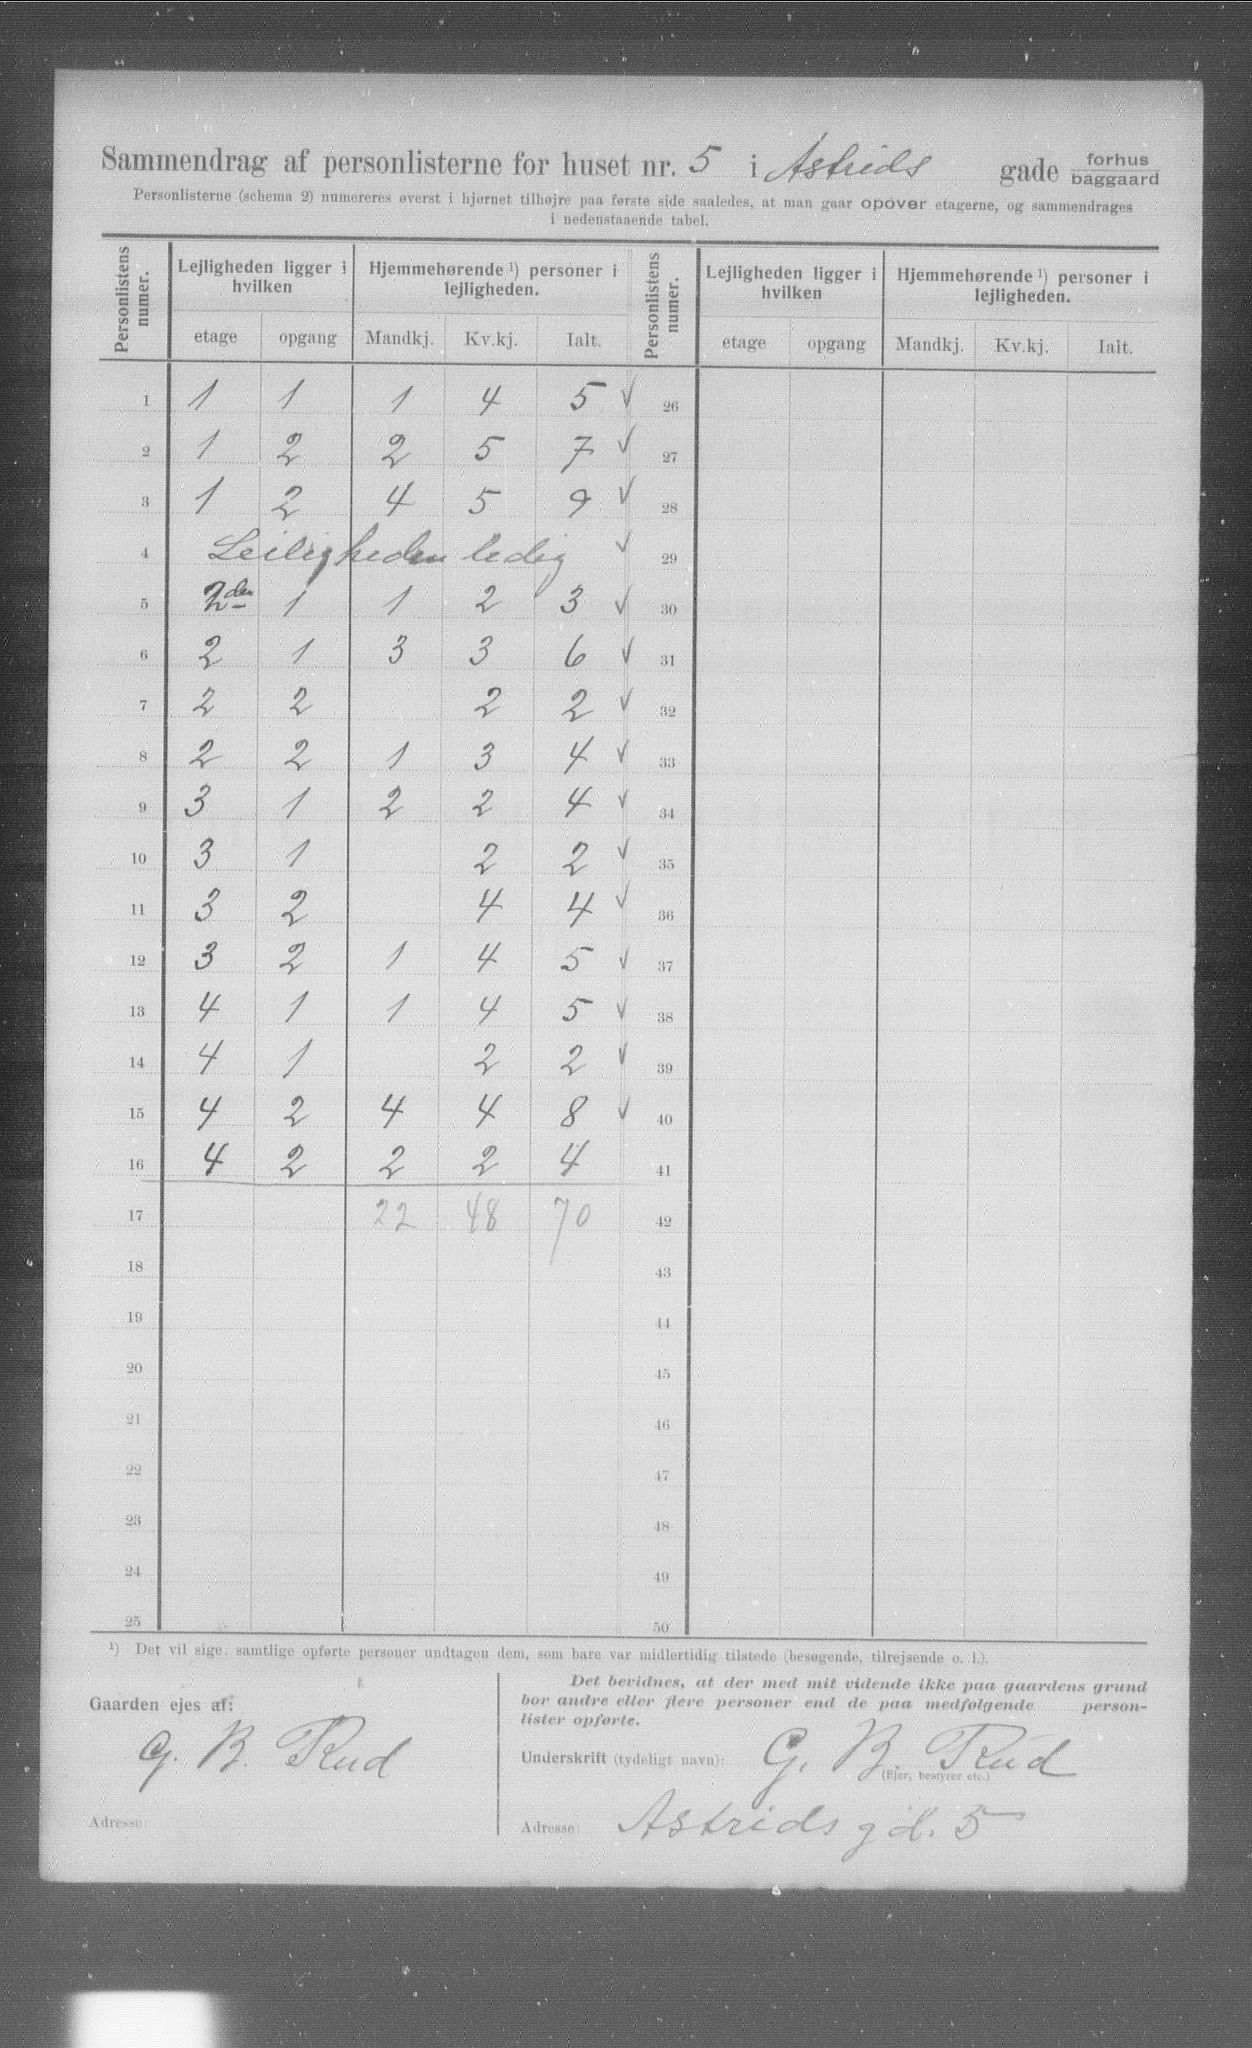 Sammendrag af personlisterne for huset nr. 5 i Astrids gade forhus baggaard
Personlisterne (schema 2) numereres øverst i hjørnet tilhøjre paa første side saaledes, at man gaar opover etagerne, og sammendrages
i nedenstaaende tabel.
Personlistens numer. Lejligheden ligger i hvilken Hjemmehørende ¹) personer i lejligheden. Personlistens numer. Lejligheden ligger i hvilken Hjemmehørende ¹) personer i lejligheden.
etage opgang Mandkj. Kv.kj. Ialt. etage opgang Mandkj. Kv.kj. Ialt.
1 1 1 1 4 5 ✓ 26
2 1 2 2 5 7 ✓ 27
3 1 2 4 5 9 ✓ 28
4 Leiligheden ledig ✓ 29
5 2den 1 1 2 3 ✓ 30
6 2 1 3 3 6 ✓ 31
7 2 2 2 2 ✓ 32
8 2 2 1 3 4 ✓ 33
9 3 1 2 2 4 ✓ 34
10 3 1 2 2 ✓ 35
11 3 2 4 4 ✓ 36
12 3 2 1 4 5 ✓ 37
13 4 1 1 4 5 ✓ 38
14 4 1 2 2 ✓ 39
15 4 2 4 4 8 ✓ 40
16 4 2 2 2 4 41
17 22 48 70 42
18 43
19 44
20 45
21 46
22 47
23 48
24 49
25 50
¹) Det vil sige: samtlige opførte personer undtagen dem, som bare var midlertidig tilstede (besøgende, tilrejsende o. l.).
Gaarden ejes af:
G. B. Rud
Adresse:
Det bevidnes, at der med mit vidende ikke paa gaardens grund
bor andre eller flere personer end de paa medfølgende personlister opførte.
Underskrift (tydeligt navn): G. B. Rud
(Ejer, bestyrer etc.)
Adresse: Astrids gd. 5